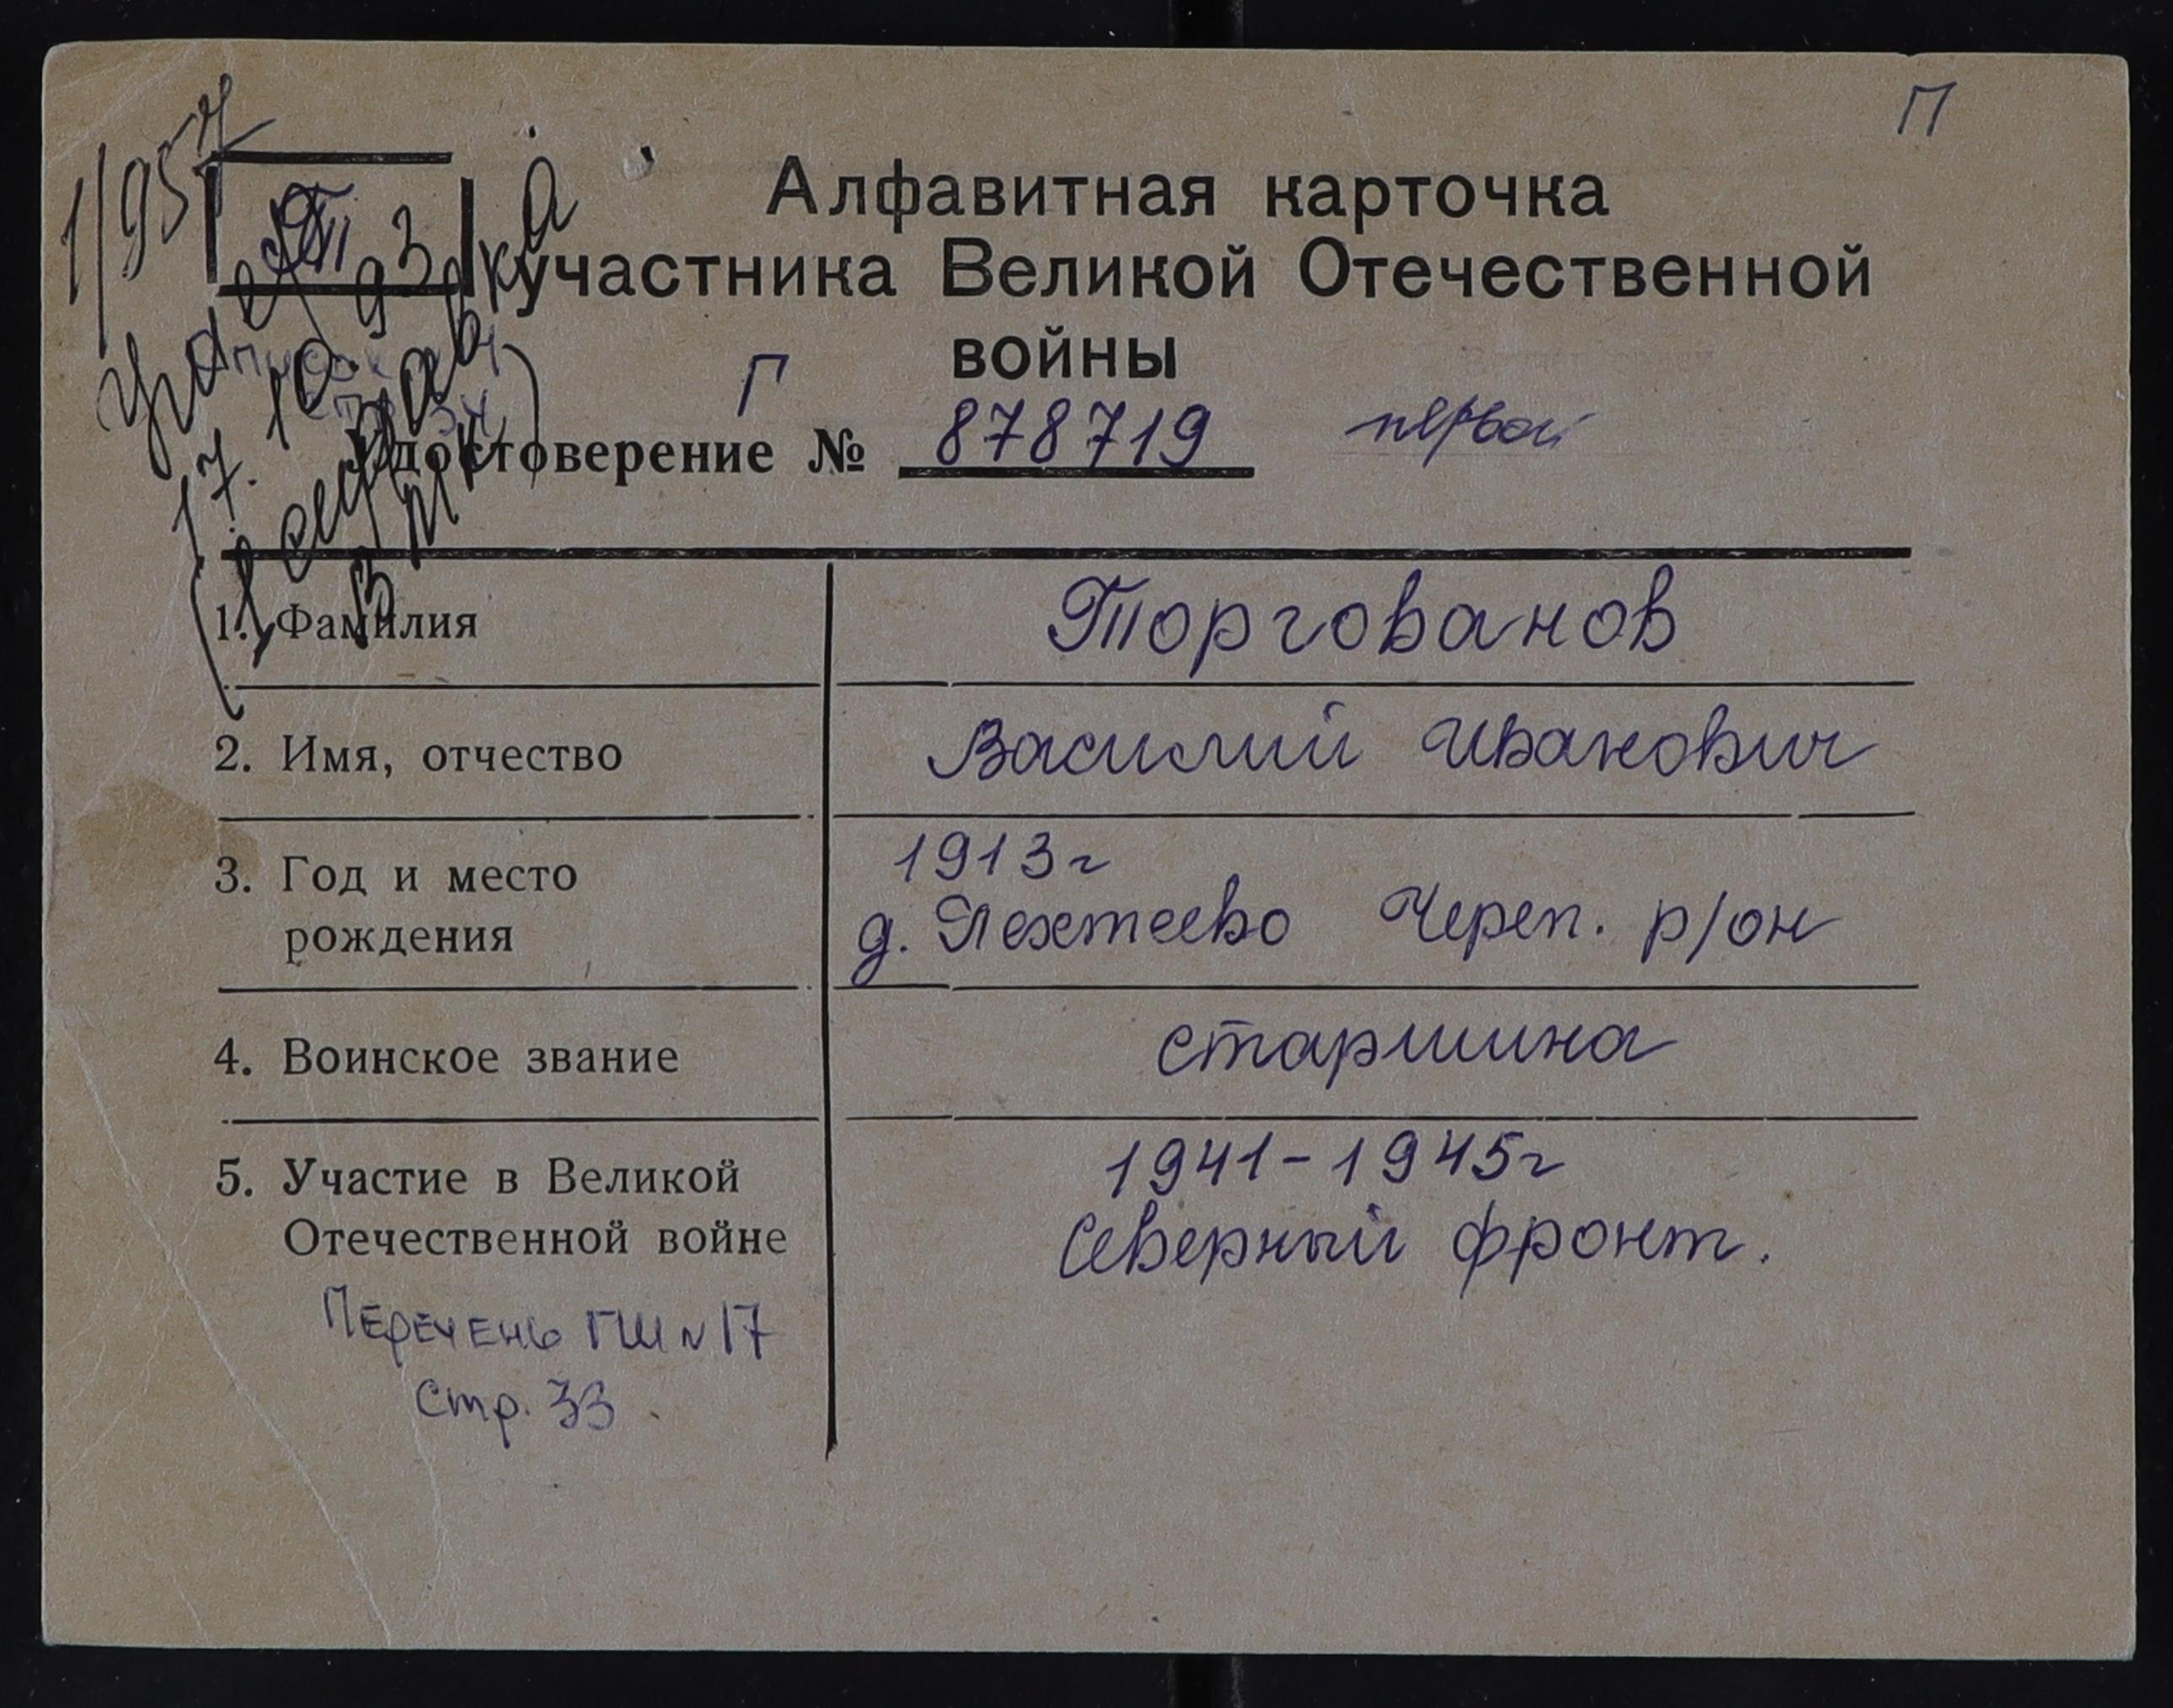 П
1/957
Т
Алфавитная карточка
участника Великой Отечественной
войны
Г
Удостоверение № 878719 первой
17. 10. 93
справка
ВТЭК
1. Фамилия Торгованов
2. Имя, отчество Василий Иванович
3. Год и место 1913г
рождения д. Пехтеево Череп. р/он
4. Воинское звание старшина
5. Участие в Великой 1941-1945г
Отечественной войне Северный фронт.
Перечень ГШ № 17
Стр. 33